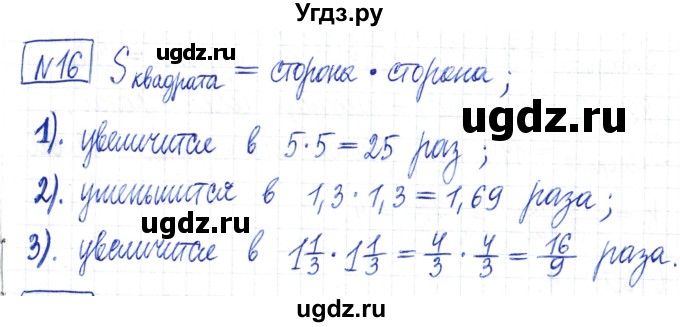 Угдз.ру
ugdz.ru ugdz.ru
№16 Sквадрата = сторона · сторона;
ugdz.ru
1). увеличится в 5·5 = 25 раз;
ugdz.ru
2). уменьшится в 1,3 · 1,3 = 1,69 раза;
ugdz.ru ugdz.ru
3). увеличится в 1 1/3 · 1 1/3 = 4/3 · 4/3 = 16/9 раза.
ugdz.ru